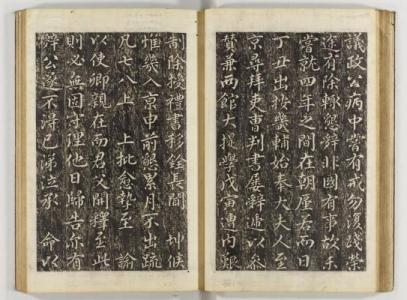 議政公病中嘗有戒勿復踐榮
途有除輒懇辭非國有事故未
嘗就四年之間在朝屋而日
丁丑出按畿輔始奉大夫人至
京尋拜吏曹判書屢辭遞以參
贊兼兩館大提學戊寅內艱
制除授禮書移銓長間 候
惟幾入京申前懇累月不出疏
凡七八上 上批愈摯至 諭
以使卿親在而君父開釋至此
則必無固守理他日歸告亦有
辭公遂不得已涕泣承 命以